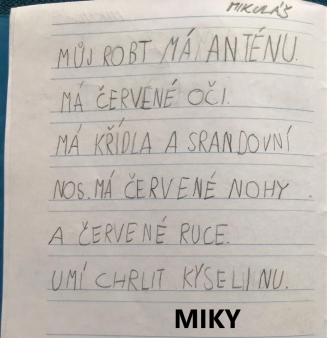 MIKULÁŠ
MŮJ ROBT MÁ ANTÉNU.
MÁ ČERVENÉ OČI.
MÁ KŘÍDLA A SRANDOVNÍ
NOS. MÁ ČERVENÉ NOHY
A ČERVENÉ RUCE.
UMÍ CHRLIT KYSELINU.
MIKY